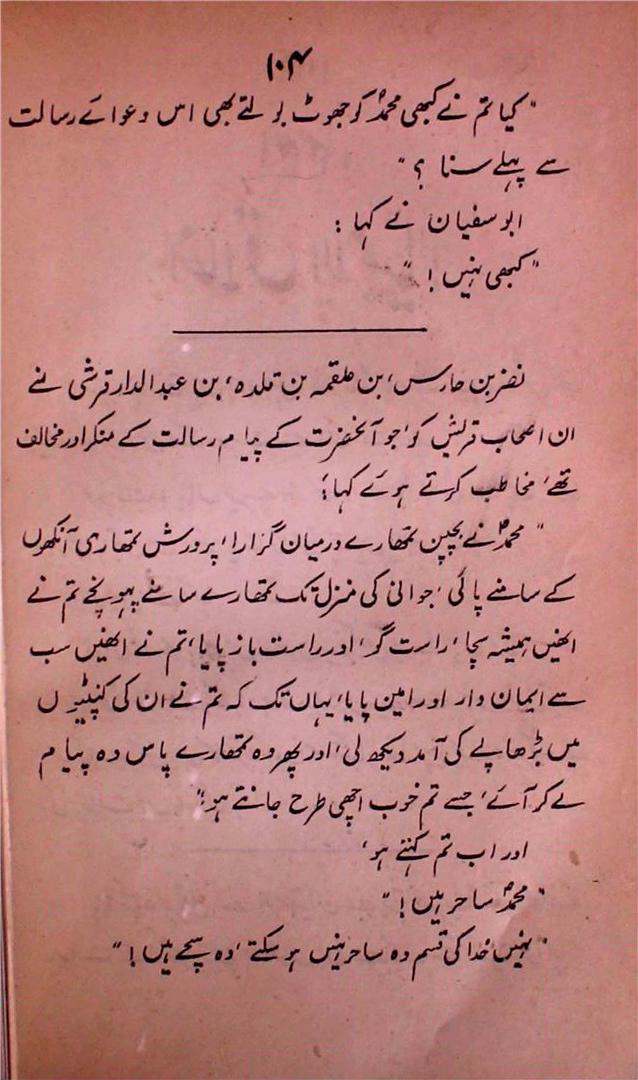 ۱۰۴
"کیا تم نے کبھی محمدؐ کو جھوٹ بولتے بھی اس دعوائے رسالت
سے پہلے سنا ؟"
ابوسفیان نے کہا :
"کبھی نہیں !"
نضر بن حارس، بن علقمہ بن قلدہ، بن عبدالدار قرشی نے
ان اصحاب قریش کو، جو آنحضرت کے پیام رسالت کے منکر اور مخالف
تھے، مخاطب کرتے ہوئے کہا؛
"محمدؐ نے بچپن تمھارے درمیان گزارا، پرورش تمھاری آنکھوں
کے سامنے پائی، جوانی کی منزل تک تمھارے سامنے پہونچے تم نے
انھیں ہمیشہ سچا، راست گو، اور راست باز پایا، تم نے انھیں سب
سے ایمان دار اور امین پایا، یہاں تک کہ تم نے ان کی کنپٹیوں
میں بڑھاپے کی آمد دیکھ لی، اور پھر وہ تمھارے پاس وہ پیام
لے کر آئے، جسے تم خوب اچھی طرح جانتے ہو،"
اور اب تم کہتے ہو،
"محمدؐ ساحر ہیں !"
"نہیں خدا کی قسم وہ ساحر نہیں ہو سکتے، وہ سچے ہیں !"